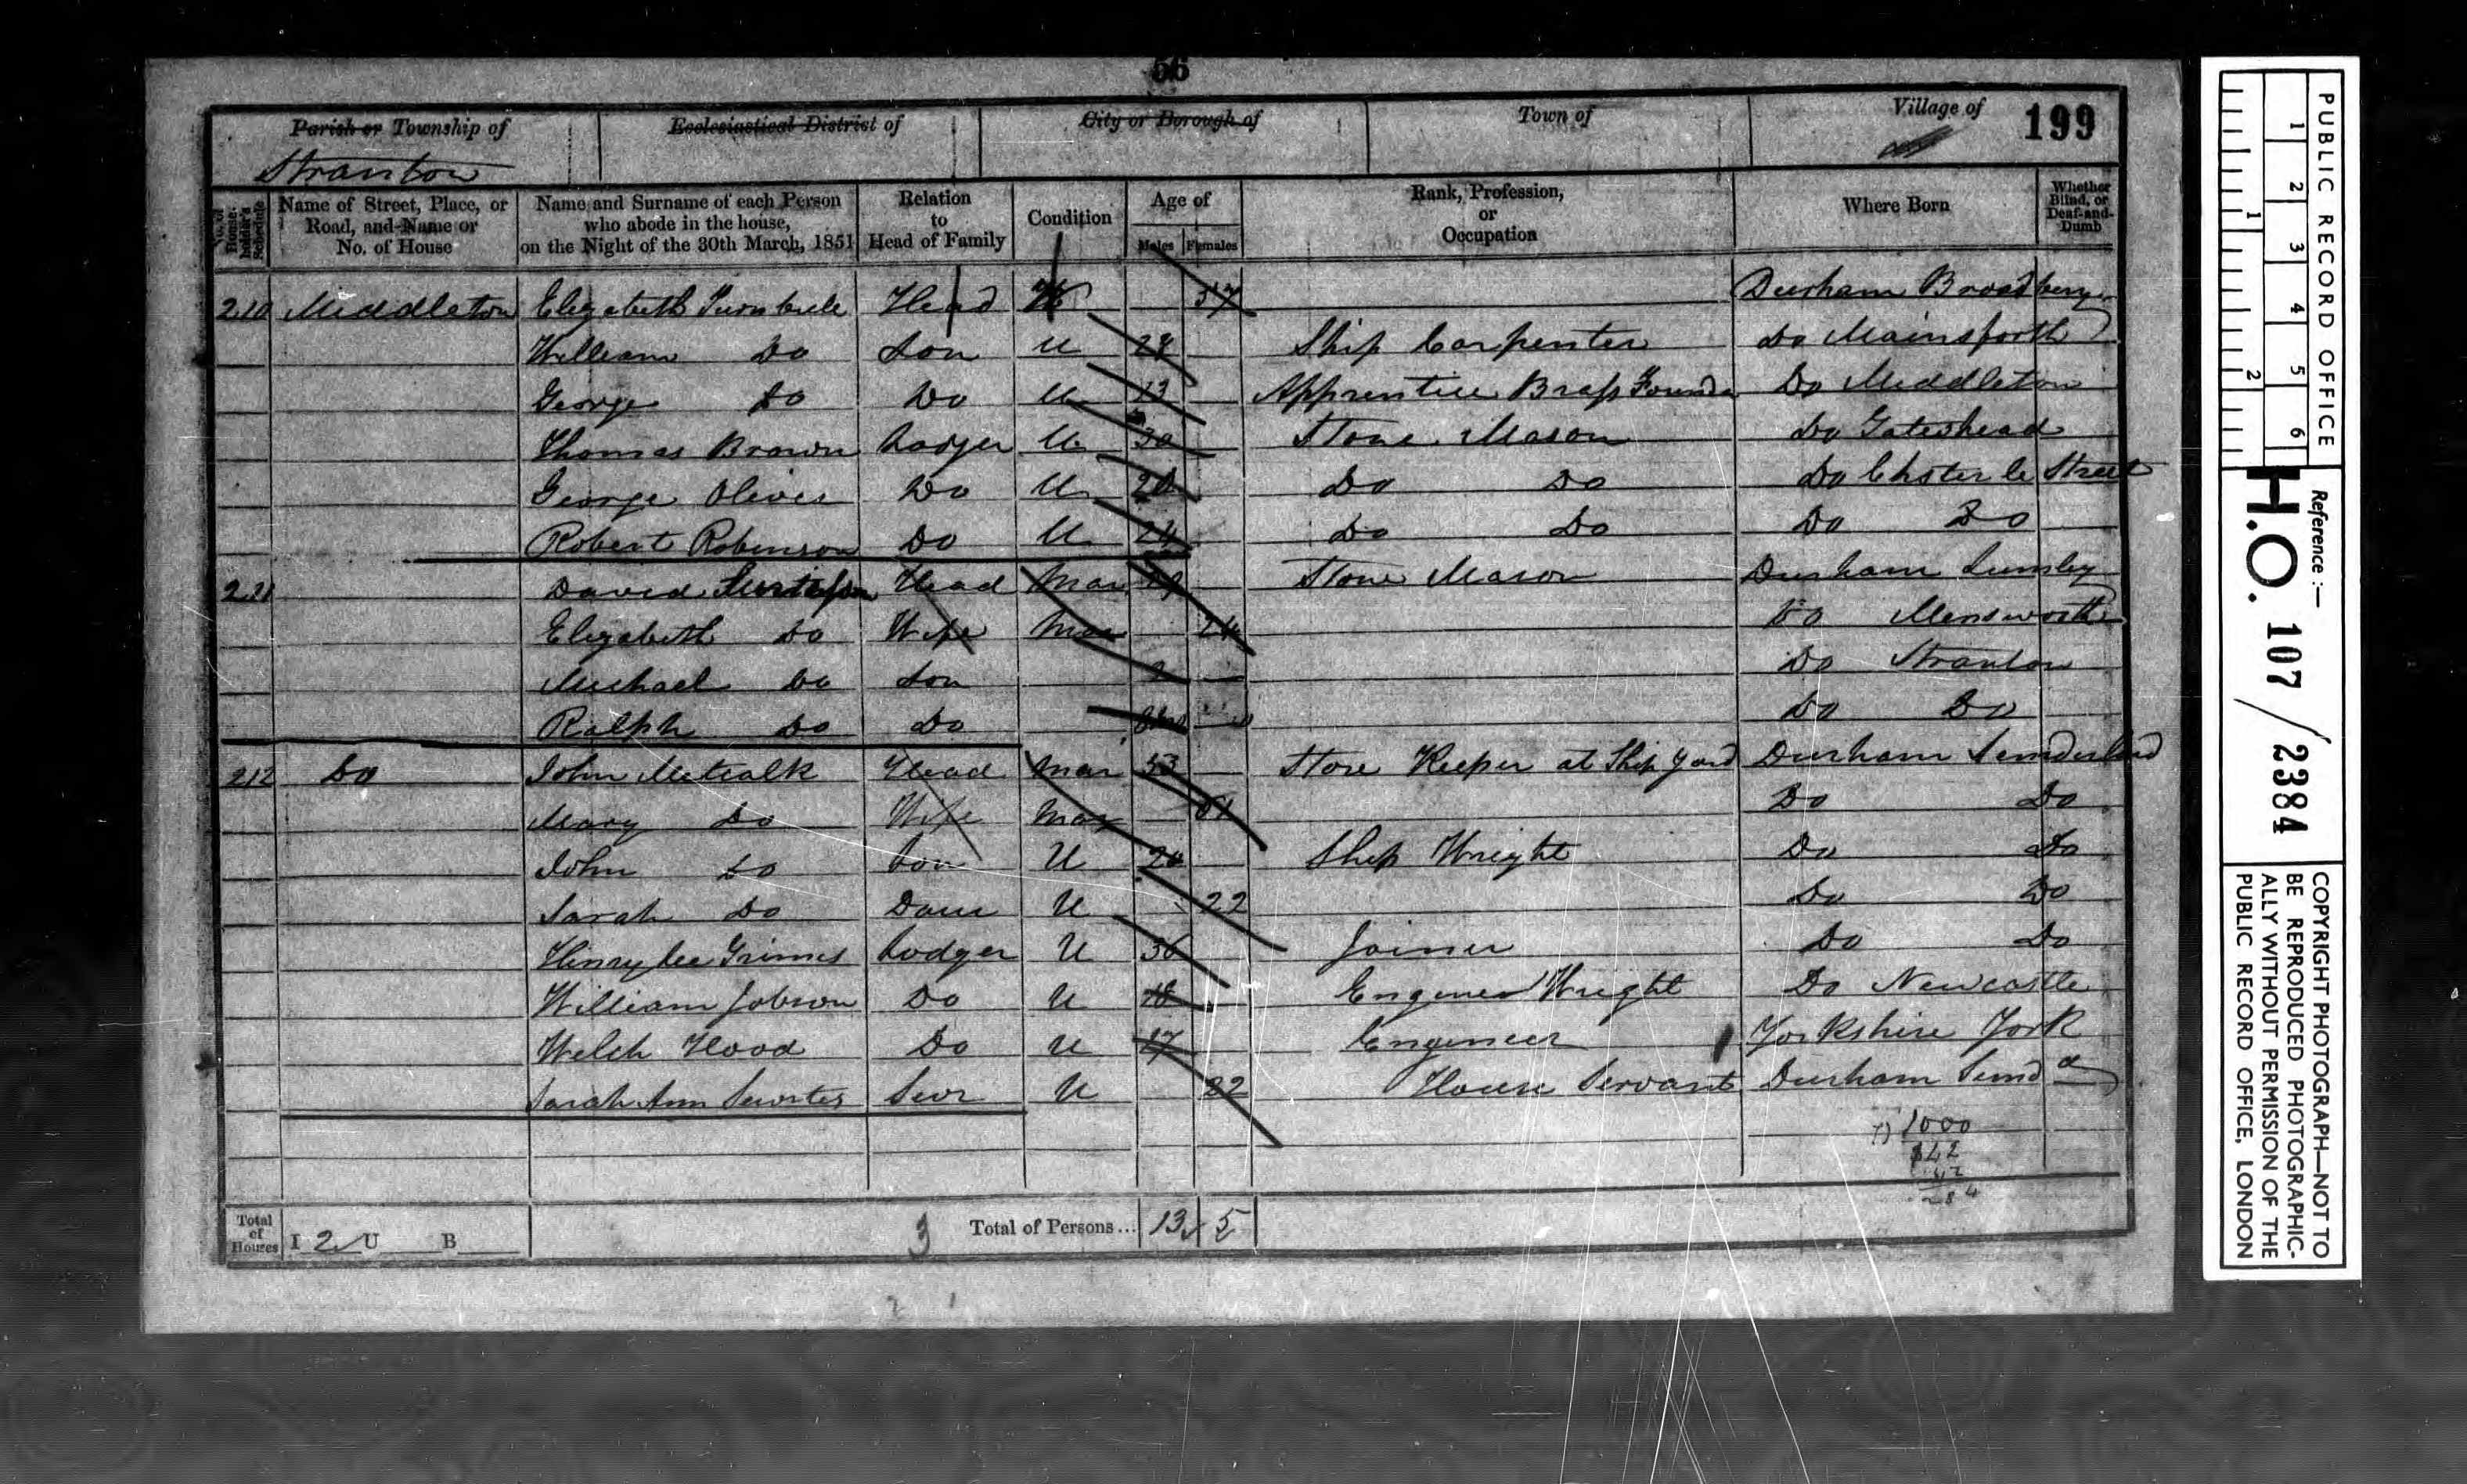 56
Parish or Township of Ecclesiastical District of City or Borough of Town of Village of 199
Stranton
No. of House-holder's Schedule Name of Street, Place, or Road, and Name or No. of House Name and Surname of each Person who abode in the house, on the Night of the 30th March, 1851 Relation to Head of Family Condition Age of Males Females Rank, Profession, or Occupation Where Born Whether Blind, or Deaf-and-Dumb
210 Middleton Elizabeth Turnbull Head 57 Durham
William Do Son U 28 Ship Carpenter Do Mainsforth
George Do Do U 13 Apprentice Brass Do Middleton
Thomas Brown Lodger U 30 Stone Mason Do Gateshead
George Oliver Do U Do Do Do Chster le Street
Robert Robinson Do U 24 Do Do Do Do
David Head Mar 29 Stone Mason Durham Lumley
Elizabeth Do Wife Mar 24 Do
Michael Do Son Do Stranton
Ralph Do Do Do Do
212 Do John Metcalk Head Mar 53 Store Keeper at Ship Yard Durham Sunderland
Mary Do Wife Mar 51 Do Do
John Do Son U Ship Wright Do Do
Sarah Do U 22 Do Do
Henry Lee Grimes Lodger U 36 Joiner Do Do
William Jobson Do U 18 Wright Do Newcastle
Welch Hood Do U 17 Engineer Yorkshire York
Sarah Ann Serv U 22 House Servant Durham Sund
7) 1000
142
42
284
Total of Houses I 2 U B 3 Total of Persons... 13 5
PUBLIC RECORD OFFICE
1 2 3 4 5 6
1 2
Reference :—
H.O. 107 / 2384
COPYRIGHT PHOTOGRAPH—NOT TO
BE REPRODUCED PHOTOGRAPHIC-
ALLY WITHOUT PERMISSION OF THE
PUBLIC RECORD OFFICE, LONDON